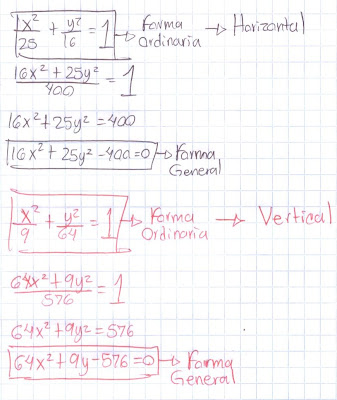 x²/25 + y²/16 = 1 → Forma Ordinaria → Horizontal
16x² + 25y²/400 = 1
16x² + 25y² = 400
16x² + 25y² - 400 = 0 → Forma General
x²/9 + y²/64 = 1 → Forma Ordinaria → Vertical
64x² + 9y²/576 = 1
64x² + 9y² = 576
64x² + 9y - 576 = 0 → Forma General